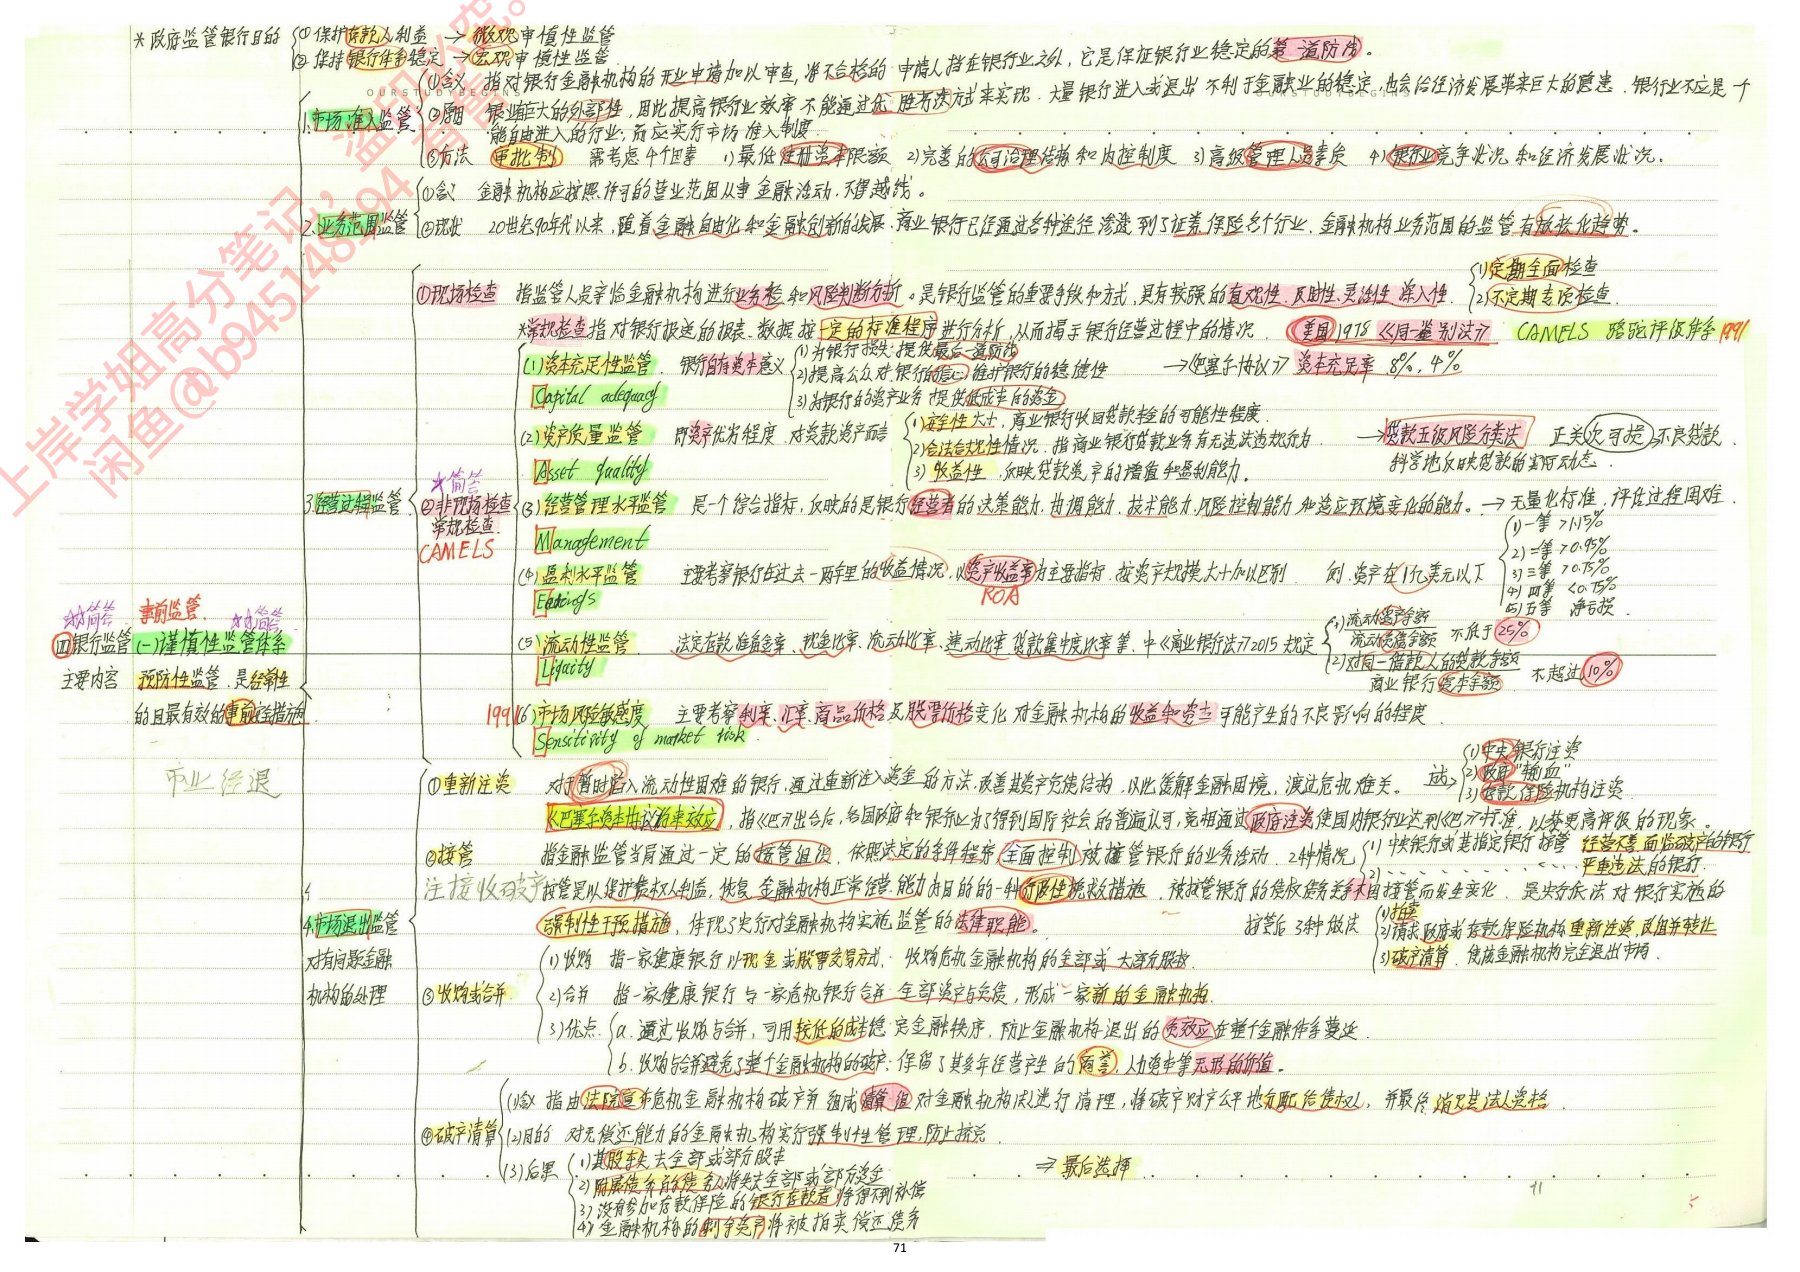 *政府监管银行目的 ①保护存款人利益 → 微观审慎性监管
②保持银行体系稳定 → 宏观审慎性监管
OURSTUDYBEGINS
四银行监管主要内容
**简答
事前监管
**简答
(一)谨慎性监管体系
预防性监管，是经常性
的且最有效的事前安全措施
市业经退
1.市场准入监管
①含义 指对银行金融机构的开业申请加以审查，将不合格的申请人挡在银行业之外，它是保证银行业稳定的第一道防线。
②原因 银行业有巨大的外部性，因此提高银行业效率不能通过优胜劣汰方式来实现，大量银行进入或退出不利于金融业的稳定，也会给经济发展带来巨大的隐患，银行业不应是一个
能自由进入的行业，而应实行市场准入制度
③方法 审批制 需考虑4个因素 1)最低注册资本限额 2)完善的公司治理结构和内控制度 3)高级管理人员素质 4)银行业竞争状况和经济发展状况。
2.业务范围监管
①含义 金融机构应按照许可的营业范围从事金融活动，不得越线。
②现状 20世纪90年代以来，随着金融自由化和金融创新的发展，商业银行已经通过各种途径渗透到了证券、保险各个行业，金融机构业务范围的监管有放松化趋势。
3.经营过程监管
①现场检查 指监管人员亲临金融机构进行业务检和风险判断分析，是银行监管的重要手段和方式，具有较强的直观性、及时性、灵活性、深入性
1)定期全面检查
2)不定期专项检查.
*简答
②非现场检查
常规检查
CAMELS
*常规检查指对银行报送的报表、数据按一定的标准程序进行分析，从而揭示银行经营过程中的情况. 美国1978《同一鉴别法》 CAMELS 骆驼评级体系 1991
(1)资本充足性监管 银行自有资本意义
Capital adequacy
1)为银行损失提供最后一道防线
2)提高公众对银行的信心，维护银行的稳健性
3)为银行的资产业务提供低成本的资金
→《巴塞尔协议》资本充足率 8%, 4%
(2)资产质量监管 即资产优劣程度，对贷款资产而言
Asset quality
1)安全性大小，商业银行收回贷款本金的可能性程度.
2)合法合规性情况，指商业银行贷款业务有无违法违规行为
3)收益性，反映贷款资产的增值和盈利能力.
→贷款五级风险分类法 正关次可损 不良贷款
科学地反映贷款的实际动态.
(3)经营管理水平监管 是一个综合指标，反映的是银行经营者的决策能力，协调能力，技术能力，风险控制能力和适应环境变化的能力。→ 无量化标准，评估过程困难.
Management
(4)盈利水平监管 主要考察银行在过去一两年里的收益情况，以资产收益率为主要指标，按资产规模大小加以区别. 例.资产在1亿美元以下
Earnings
ROA
1)一等 >1.15%
2)二等 >0.95%
3)三等 >0.75%
4)四等 <0.75%
5)五等 净亏损.
(5)流动性监管 法定存款准备金率、现金比率、流动比率、速动比率、贷款集中度比率等，中《商业银行法》2015规定
Liquity
1)流动资产余额
流动负债余额 不低于25%
2)对同一借款人的贷款余额
商业银行资本余额 不超过10%
1991 (6)市场风险敏感度 主要考察利率、汇率、商品价格及股票价格变化对金融机构的收益和资本可能产生的不良影响的程度
Sensitivity of market risk
4.市场退出监管
对有问题金融
机构的处理
①重新注资 对于暂时陷入流动性困难的银行，通过重新注入资金的方法，改善其资产负债结构，以此缓解金融困境，渡过危机难关。
1)中央银行注资
2)政府"输血"
3)存款保险机构注资.
《巴塞尔资本协议》约束效应，指《巴》出台后，各国政府和银行业为了得到国际社会的普遍认可，竞相通过政府注资使国内银行业达到《巴》标准，以获更高评级的现象。
②接管 指金融监管当局通过一定的接管组织，依照法定的条件程序，全面控制被接管银行的业务活动. 2种情况
1)中央银行或其指定银行接管 经营不善面临破产的银行
2) 严重违法的银行.
注接收破产
接管是以保护债权人利益，恢复金融机构正常经营能力为目的的一种行政性挽救措施，被接管银行的债权债务关系不因接管而发生变化，是央行依法对银行实施的
强制性干预措施，体现了央行对金融机构实施监管的法律职能。
接管后 3种做法
1)拍卖
2)请求政府或存款保险机构重新注资，改组并转让
3)破产清算，使该金融机构完全退出市场.
③收购或合并
1)收购 指一家健康银行以现金或股票交易方式，收购危机金融机构的全部或大部分股权.
2)合并 指一家健康银行与一家危机银行合并全部资产与负债，形成一家新的金融机构.
3)优点 a.通过收购与合并，可用较低的成本稳定金融秩序，防止金融机构退出的负效应在整个金融体系蔓延
b.收购与合并避免了整个金融机构的破产；保留了其多年经营产生的商誉，人力资本等无形的价值。
④破产清算
(1)含义 指由法院宣布危机金融机构破产并组成清算组对金融机构法人进行清理，将破产财产公平地分配给债权人，并最终消灭其法人资格.
(2)目的 对无偿还能力的金融机构实行强制性管理，防止挤兑
(3)后果 1)其股东失去全部或部分股本
2)附属债务的债务人将失去全部或部分资金
3)没有参加存款保险的银行存款者将得不到补偿
4)金融机构的剩余资产将被拍卖偿还债务
⇒ 最后选择
71
上岸学姐高分笔记，盗印必究。
闲鱼@b945148594 有背景